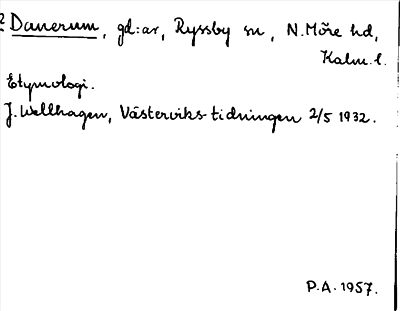 2 Danerum, gd:ar, Ryssby sn, N.Möre hd,
Kalm.l.
Etymologi.
J.Wellhagen, Västerviks-tidningen 2/5 1932.
P.A. 1957.